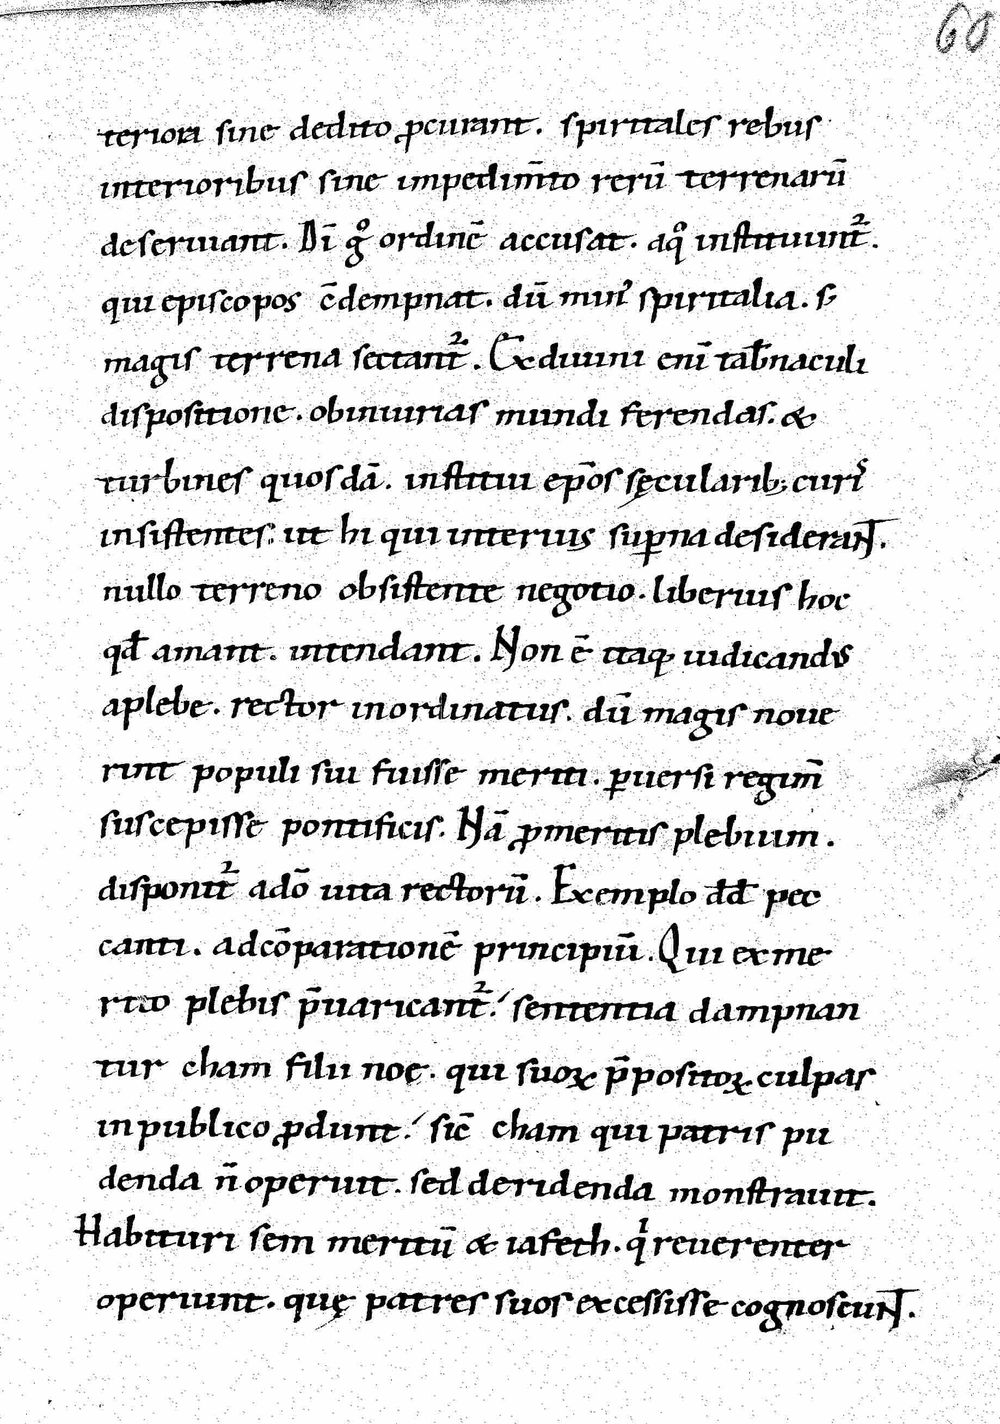 60
teriora sine dedito ꝓcurant. spiritales rebus
interioribus sine impedim̄to rerū terrenarū
deseruiant. Dī gͦ ordinē accusat. aqͦ instituunt᷑.
qui episcopos c̄dempnat. dū min᷒ spiritalia. s;
magis terrena sectant᷑. Ex diuini enī tab̄naculi
dispositione. obiniurias mundi ferendas. &
turbines quosdā. institui ep̄os sęcularib; curis
insistentes: ut hi qui interius suꝑna desiderant.
nullo terreno obsistente negotio. liberius hoc
qđ amant. intendant. Non ē itaq; iudicandus
aplebe. rector inordinatus. dū magis noue
rint populi sui fuisse meriti. ꝑuersi regim̄
suscepisse pontificis. Nā ꝓmeritis plebium.
disponit᷑ adō uita rectorū. Exemplo dd̄ pec
canti. adcōparationē principiū. Qui exme
rito plebis p̄uaricant᷑. sententia dampnan
tur cham filii noę. qui suoꝝ p̄positoꝝ culpas
inpublico ꝓdunt. sic̄ cham qui patris pu
denda n̄ operuit. sed deridenda monstrauit.
Habituri sem meritū & iafeth. qͥ reuerenter
operiunt. quę patres suos excessisse cognoscunt.